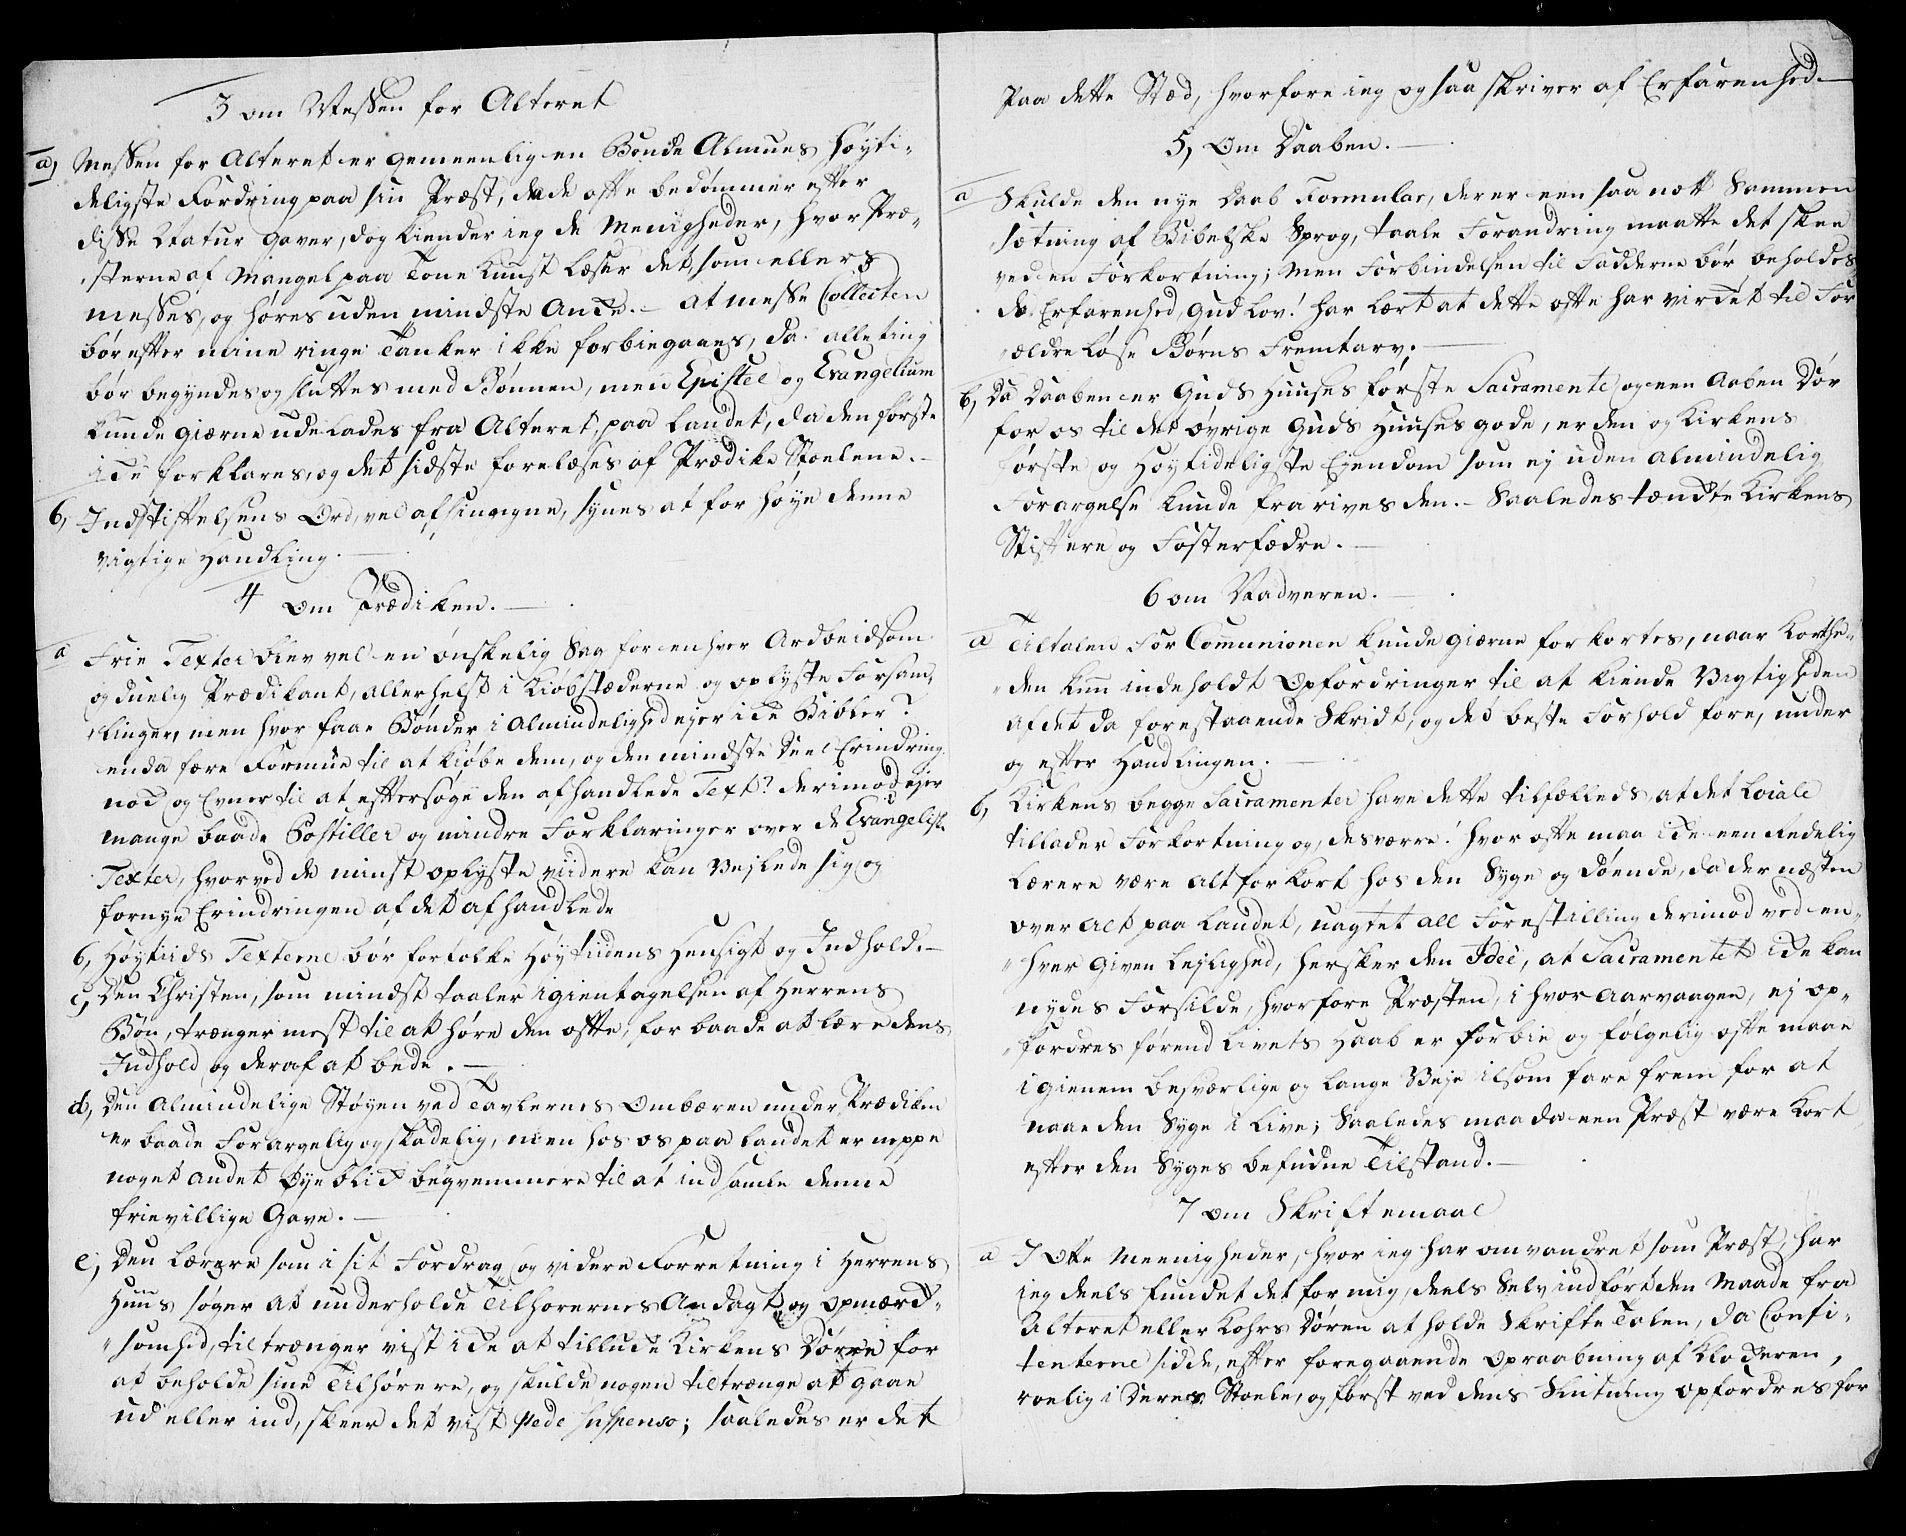 3 om Messen for Alteret
a, Messen for Alteret er gemeenlig en Bonde Almues Høyti-
deligste Fordring paa sin Præst, da de ofte bedømmer efter
disse Natur Gaver, dog kiender ieg de Menigheder, hvor Præ-
sterne af Mangel paa Tone Kunst læser det som ellers
messes, og høres uden mindste Anke. – At messe Collecten
bør efter mine ringe Tanker ikke forbiegaaes, da alle ting
bør begyndes og sluttes med Bønnen, men Epistel og Evangelium
kunde giærne udelades fra Alteret, paa Landet, da den første
icke forklares, og det sidste forelæses af Prædike Stoelene. –
b, Indstiftelsens Ord, vel afsiungne, synes at for høye denne
vigtige Handling. –
4 om Prædiken. –
a Frie Texter blev vel en ønskelig Sag for enhver Ardbeidsom
og duelig Prædikant, allerhelst i Kiøbstæderne og oplyste Forsam-
linger, men hvor faae Bønder i Almindelighed ejer icke Bibler?
enda fære Formue til at kiøbe dem, og den mindste Deel Erindring
nok og Evner til at eftersøge den afhandlede Text? derimod ejer
mange baade Postiller og mindre Forklaringer over de Evangelisk
Texter, hvorved de minst oplyste viidere kan Vejlede sig og
fornye Erindringen af det afhandlede
b, Høytids Texterne bør fortolke Høytiidens Hensigt og Indhold. –
c, Den Christen, som mindst taaler igientagelsen af Herrens
Bøn, trænger mest til at høre den ofte, for baade at lære dens
Indhold og deraf at bede. –
d, Den Almindelige Støyen ved Tavlernes Ombæren under Prædiken
er baade Forargelig og skadelig, men hos os paa Landet er neppe
noget andet Øyeblick beqvemmere til at indsamle denne
frievillige Gave. –
e, Den Lærere som i sit Fordrag og videre Forretning i Herrens
Huus søger at underholde Tilhørernes Andagt og opmærk-
somhed, tiltrænger vist icke at tillucke Kirkens Dørre for
at beholde sine Tilhørere, og skulde nogen tiltrænge at gaae
ud eller ind, skeer det vist pede suspenso; saaledes er det
paa dette Stæd, hvorfore ieg ogsaa skriver af Erfarenhed –
5, Om Daaben. –
a Skulde den nye Daab Formular, der er een saa nætt Sammen
sætning af Bibelske Sprog, taale Forandring maatte det skee
ved en Forkortning; Men Forbindelsen til Fadderne bør beholdes
da Erfarenhed, Gud Lov! har lært at dette ofte har virket til For
ældreløse Børns Fremtarv. –
b, Da Daaben er Guds Huuses første Sacramente og een Aaben Dør
for os til det øvrige Guds Huuses gode, er den og Kirkens
første og Høytideligste Ejendom som ej uden almindelig
Forargelse kunde frarives den. – Saaledes tænkte Kirkens
Stiftere og Fosterfædre. –
6 om Nadveren. –
a Tiltalen For Communionen kunde giærne forkortes, naar Korthe-
den kun indeholdt Opfordringer til at kiende Vigtigheden
af det da forestaaende Skridt, og det beste Forhold fore, under
og efter Handlingen. –
b, Kirkens begge Sacramenter have dette tilfælleds, at det Locale
tillader Forkortning og, desværre! hvor ofte maa icke een Redelig
Lærere være alt for kort hos den Syge og Døende, da der næsten
over alt paa Landet, uagtet all Forestilling derimod ved en-
hver given Lejlighed, hersker den Ideè, at Sacramentet icke kan
nydes Forsilde, hvorfore Præsten, i hvor aarvaagen, ej op-
fordres førend Livets Haab er forbie og følgelig ofte maae
igienem besværlige og lange Veje ilsom fare frem for at
naae den Syge i Live; Saaledes maa da een Præst være kort
efter den Syges befudne Tilstand. –
7 om Skriftemaal
a I Otte Meenigheder, hvor ieg har omvandret som Præst, har
ieg deels fundet det for mig, deels Selv indført den Maade fra
Alteret eller Kohrs Døren at holde Skrifte Talen, da Confi-
tenterne sidde, efter foregaaende Opraabning af Klockeren,
roelig i Deres Stoele, og først ved dens Slutning opfordres for